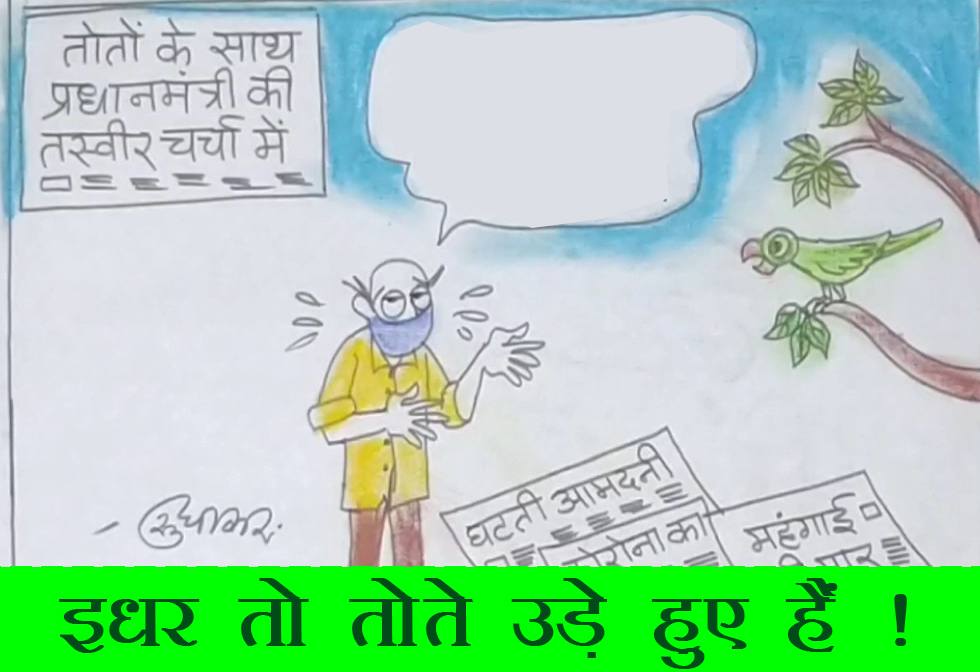 तोतों के साथ
प्रधानमंत्री की
तस्वीर चर्चा में
सुधाकर
घटती आमदनी
कोरोना का
महंगाई
मार
इधर तो तोते उड़े हुए हैं !